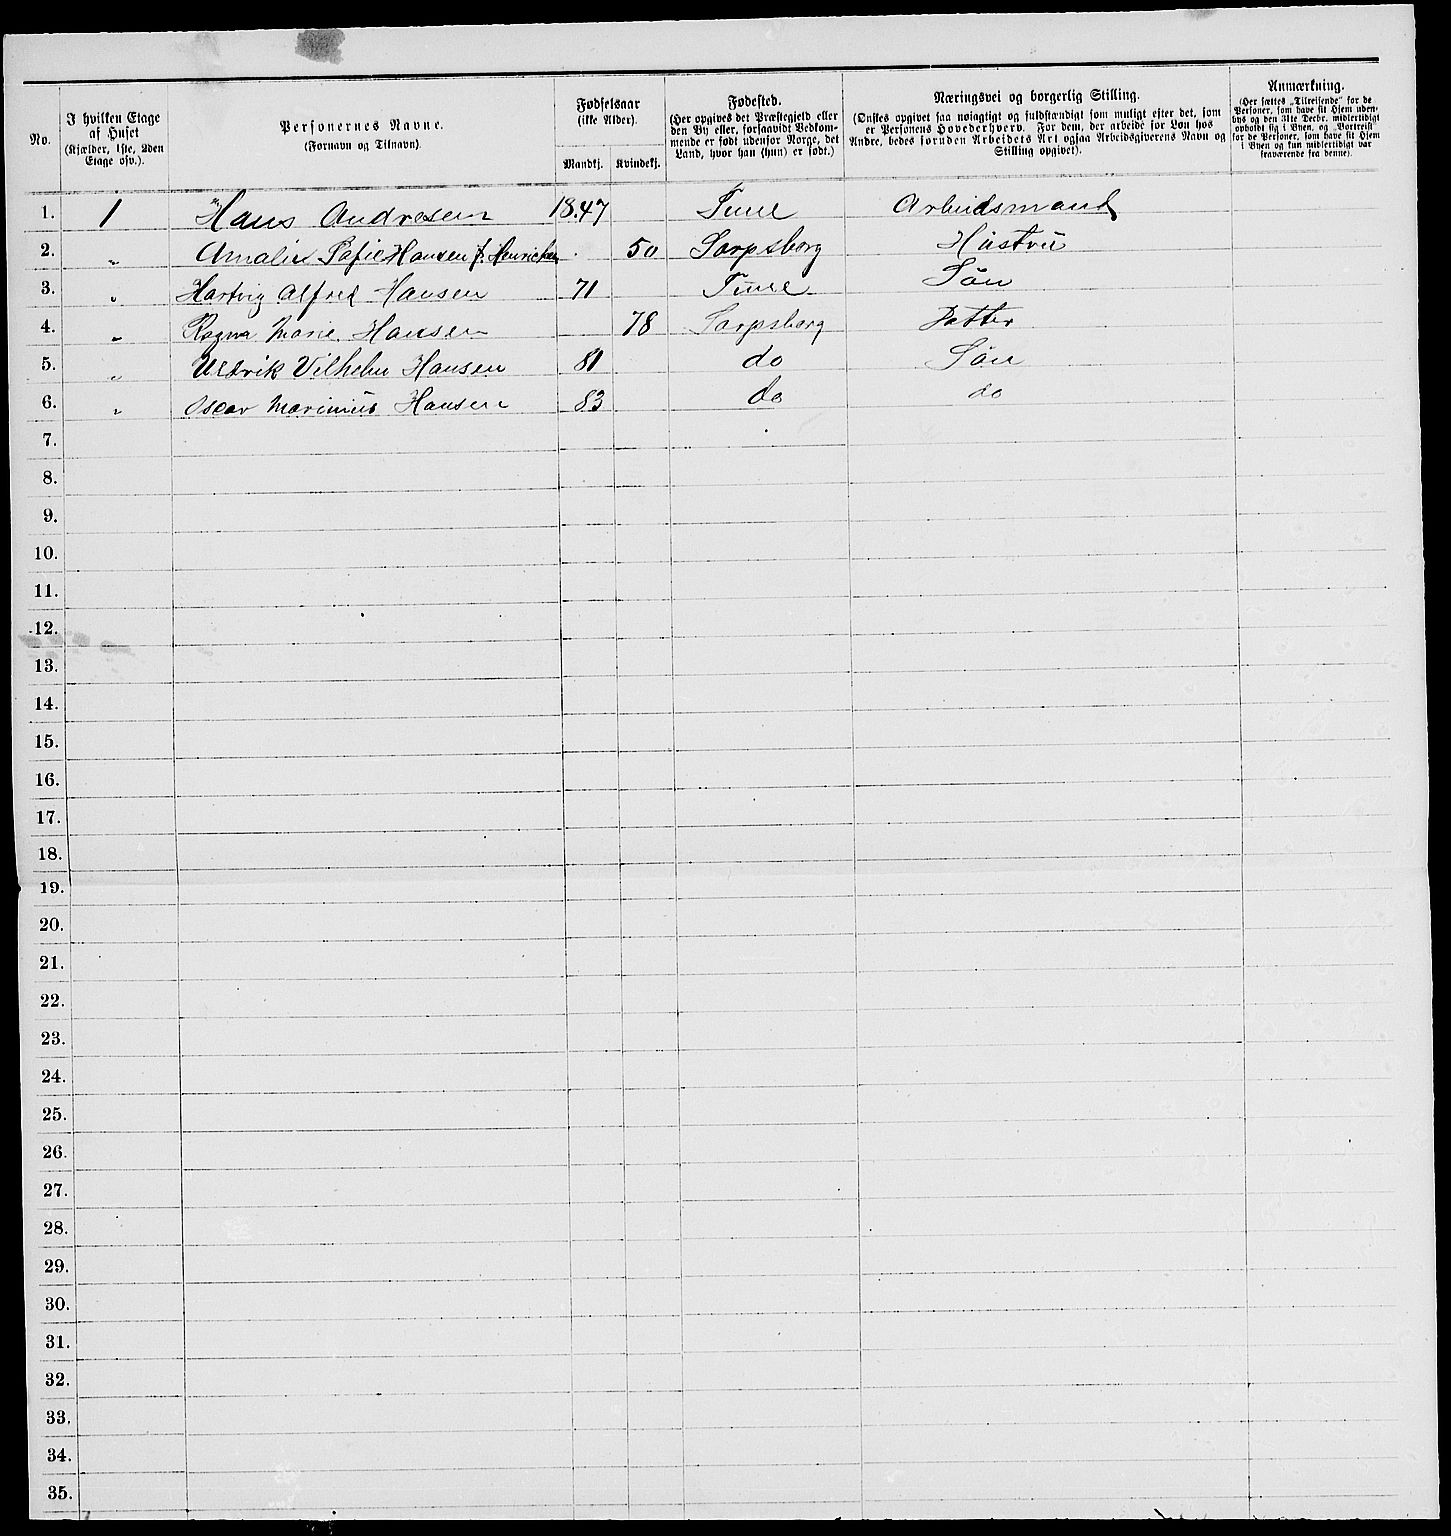 No.
I hvilken Etage
af Huset
(Kjælder, 1ste, 2den
Etage osv.).
Personernes Navne.
(Fornavn og Tilnavn).
Fødselsaar
(ikke Alder).
Mandkj. Kvindekj.
Fødested.
(Her opgives det Præstegjeld eller
den By eller, forsaavidt Vedkom-
mende er født udenfor Norge, det
Land, hvor han (hun) er født.)
Næringsvei og borgerlig Stilling.
(Ønskes opgivet saa nøiagtigt og fuldstændigt som muligt efter det, som
er Personens Hovederhverv. For dem, der arbeide for Løn hos
Andre, bedes foruden Arbeidets Art ogsaa Arbeidsgiverens Navn og
Stilling opgivet).
Anmærkning.
(Her sættes „Tilreisende" for de
Personer, som have sit Hjem uden-
bys og den 31te Decbr. midlertidigt
opholdt sig i Byen, og „Bortreist"
for de Personer, som have sit Hjem
i Byen og kun midlertidigt var
fraværende fra denne).
1. 1 Hans Andresen 1847 Tune Arbeidsmand
2. " Amalie Sofie Hansen f. Henrichsen 50 Sarpsborg Hustru
3. " Hartvig Alfred Hansen 71 Tune Søn
4. " Ragna Marie Hansen 78 Sarpsborg Datter
5. " Vilhelm Hansen 81 do Søn
6. " Oscar Marinius Hansen 83 do do
7.
8.
9.
10.
11.
12.
13.
14.
15.
16.
17.
18.
19.
20.
21.
22.
23.
24.
25.
26.
27.
28.
29.
30.
31.
32.
33.
34.
35.